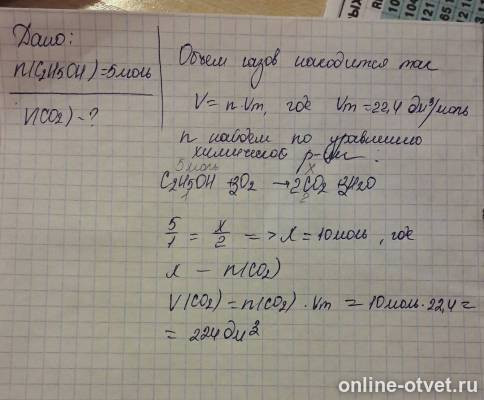 Дано:
n(C2H5OH)=5моль
V(CO2)-?
Объем газов находится так
V= n·Vm, где Vm=22,4 дм³/моль
n найдем по уравнению
химической р-ии:
5моль x
C2H5OH +3O2 →2CO2 +3H2O
1 2
5/1 = x/2 => x=10моль, где
x - n(CO2)
V(CO2)=n(CO2)·Vm = 10моль·22,4=
= 224дм³
online-otvet.ru